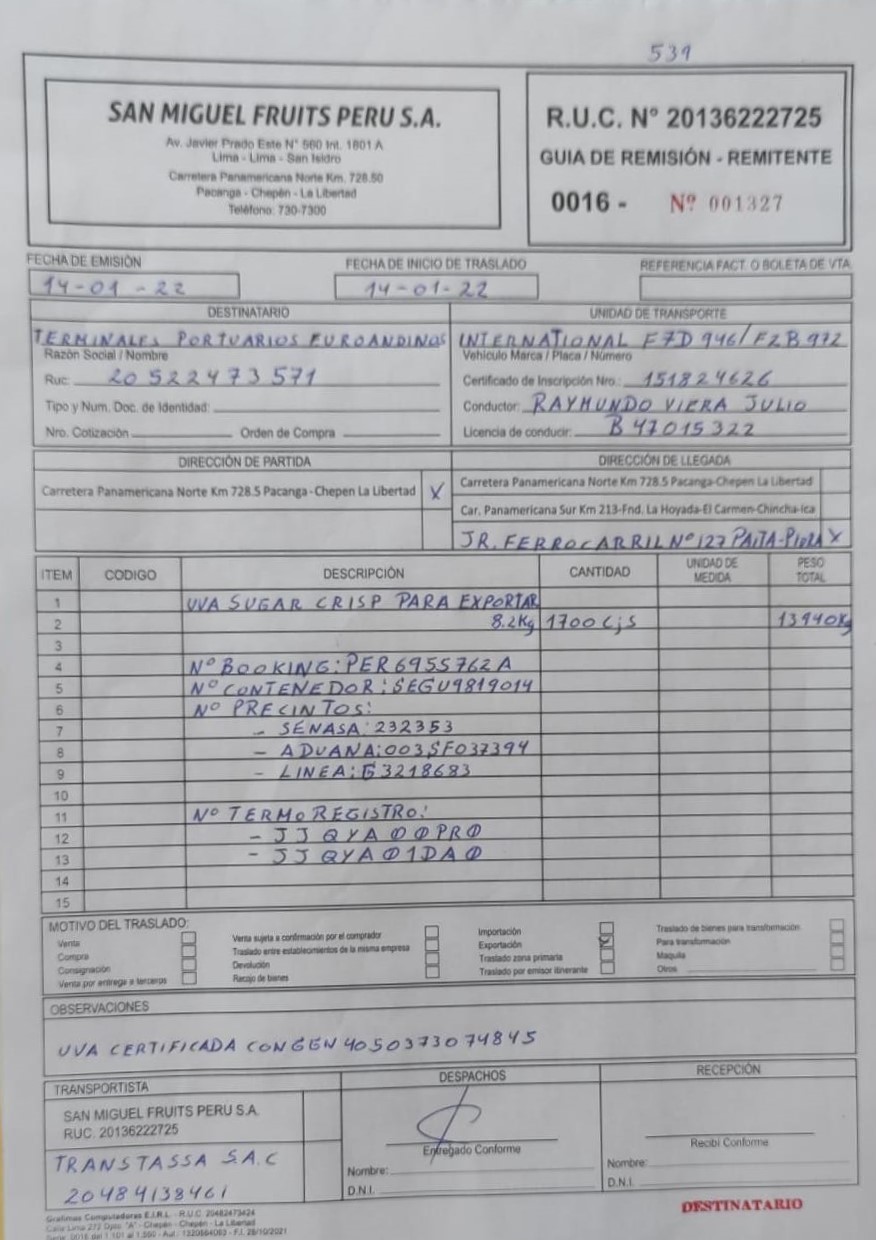 539
SAN MIGUEL FRUITS PERU S.A.
Av. Javier Prado Este N° 560 Int. 1801 A
Lima - Lima - San Isidro
Carretera Panamericana Norte Km. 728.50
Pacanga - Chepén - La Libertad
Teléfono: 730-7300
R.U.C. N° 20136222725
GUIA DE REMISIÓN - REMITENTE
0016 - Nº 001327
FECHA DE EMISIÓN
14-01-22
FECHA DE INICIO DE TRASLADO
14-01-22
REFERENCIA FACT. O BOLETA DE VTA
DESTINATARIO
TERMINALES PORTUARIOS EUROANDINOS
Razón Social / Nombre
Ruc: 20522473571
Tipo y Num. Doc. de Identidad:
Nro. Cotización Orden de Compra
UNIDAD DE TRANSPORTE
INTERNATIONAL F7D 946/FZB 972
Vehículo Marca / Placa / Número
Certificado de Inscripción Nro.: 151824626
Conductor: RAYMUNDO VIERA JULIO
Licencia de conducir: B47015322
DIRECCIÓN DE PARTIDA
Carretera Panamericana Norte Km 728.5 Pacanga-Chepen La Libertad X
DIRECCIÓN DE LLEGADA
Carretera Panamericana Norte Km 728.5 Pacanga-Chepen La Libertad
Car. Panamericana Sur Km 213-Fnd. La Hoyada-El Carmen-Chincha-Ica
JR. FERROCARRIL Nº 127 PAITA-PIURA X
ITEM CODIGO DESCRIPCIÓN CANTIDAD UNIDAD DE MEDIDA PESO TOTAL
1 UVA SUGAR CRISP PARA EXPORTAR
2 8.2Kg 1700 Cjs 13940Kg
3
4 Nº BOOKING: PER6955762A
5 Nº CONTENEDOR: SEGU9819014
6 Nº PRECINTOS:
7 - SENASA: 232353
8 - ADUANA: 003SF037394
9 - LINEA: G3218683
10
11 Nº TERMOREGISTRO:
12 - JJQYA00PR0
13 - JJQYA01DA0
14
15
MOTIVO DEL TRASLADO:
Venta
Compra
Consignación
Venta por entrega a terceros
Venta sujeta a confirmación por el comprador
Traslado entre establecimientos de la misma empresa
Devolución
Recojo de bienes
Importación
Exportación
Traslado zona primaria
Traslado por emisor itinerante
Traslado de bienes para transformación
Para transformación
Maquila
Otros
OBSERVACIONES
UVA CERTIFICADA CON GGN 4050373074845
TRANSPORTISTA
SAN MIGUEL FRUITS PERU S.A.
RUC. 20136222725
TRANSTASSA S.A.C
20484138461
DESPACHOS
Entregado Conforme
Nombre:
D.N.I.
RECEPCIÓN
Recibi Conforme
Nombre:
D.N.I.
Grafimes Computadoras E.I.R.L. - R.U.C. 20482473424
Calle Lima 272 Dpto. "A" - Chepén - Chepén - La Libertad
Serie: 0016 del 1,101 al 1,350 - Aut.: 1320864063 - F.I. 28/10/2021
DESTINATARIO